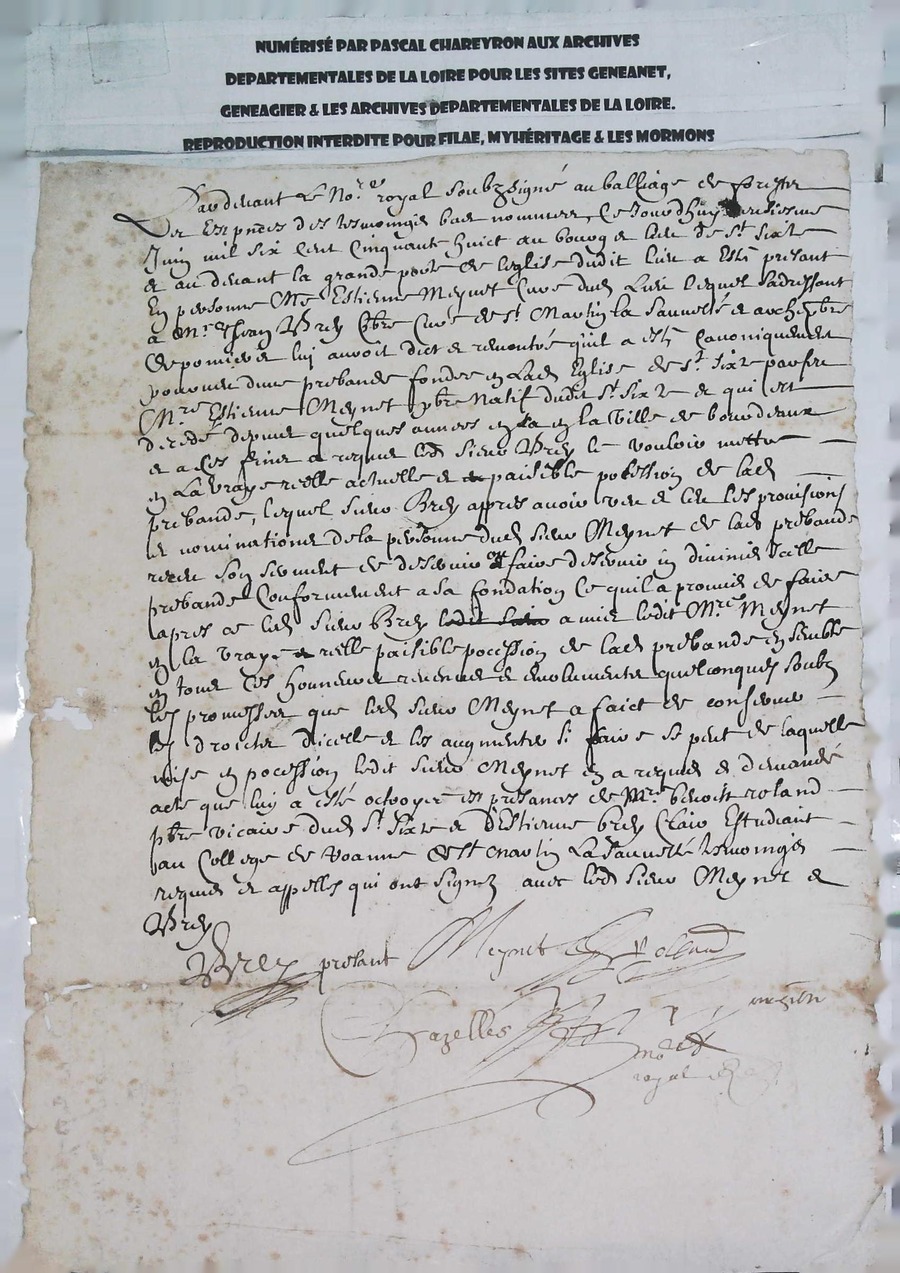 NUMÉRISÉ PAR PASCAL CHAREYRON AUX ARCHIVES
DEPARTEMENTALES DE LA LOIRE POUR LES SITES GENEANET,
GENEAGIER & LES ARCHIVES DEPARTEMENTALES DE LA LOIRE.
REPRODUCTION INTERDITE POUR FILAE, MYHÉRITAGE & LES MORMONS
Pardevant le No.re royal soubzsigné au balliage de forestz
et es pnces des tesmoings bas nommes, Ce Jourdhuy
Juin mil six cent cinquante huict au bourg et lieu de St Sixte
et au devant la grande porte de leglise dudit lieu a Esté presant
En personne Mre Estienne Meynet Curé dud Lieu lequel sadressant
a Mre Jean Brey pbre Curé de St Martin la Sauveté et archipbre
de pomiers luy auroit dict et remontré quil a esté Canoniquement
pourveu dune prebande fondée en Lad Eglise de St Sixte par feu
Mre Estienne Meynet pbre Natif dudit St Sixte et qui est
decedé depuis quelques annees en la Ville de bourdeaux
et a ces fins a requis led sieur Brey le vouloir mettre
en La vraye reelle actuelle et paisible possession de lad
prebande, lequel sieur Brey appres avoir veu et leu les provisions
et nominations de la personne dud sieur Meynet de lad prebande
receu son serment de desservir et faire desservir in divinis Icelle
prebande Conformement a sa fondation Ce quil a promis de faire
apres ce led sieur Brey a mis ledit Mre Meynet
en la vraye reelle paisible pocession de lad prebande Ensemble
en tous ces honneurs revenus et emolumentz quelconques soubz
les promesses que led sieur Meynet a faict de conserver
les droictz dicelle et les augmenter si faire se peut de laquelle
mise en pocession ledit sieur Meynet en a requis et demandé
acte que luy a esté octroyee es presances de Mre benoist roland
pbre vicaire dud St Sixte et d'Estienne brey Clair Estudiant
au College de roanne de St Martin La Sauveté tesmoings
requis et appelles qui ont signez avec led sieur Meynet et
Brey
Brey presant Meynet Rolland
Chazelles
no.re
royal